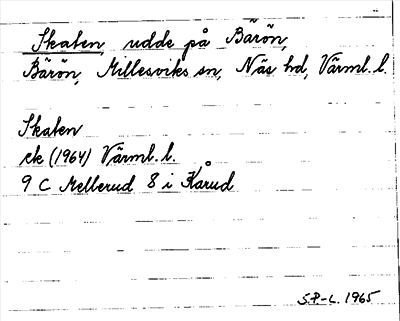 Skaten, udde på Bärön,
Bärön, Millesviks sn, Näs hd, Värml. l.
Skaten
ek (1964) Värml. l.
9 C Mellerud 8 i Kårud
S.P-L. 1965